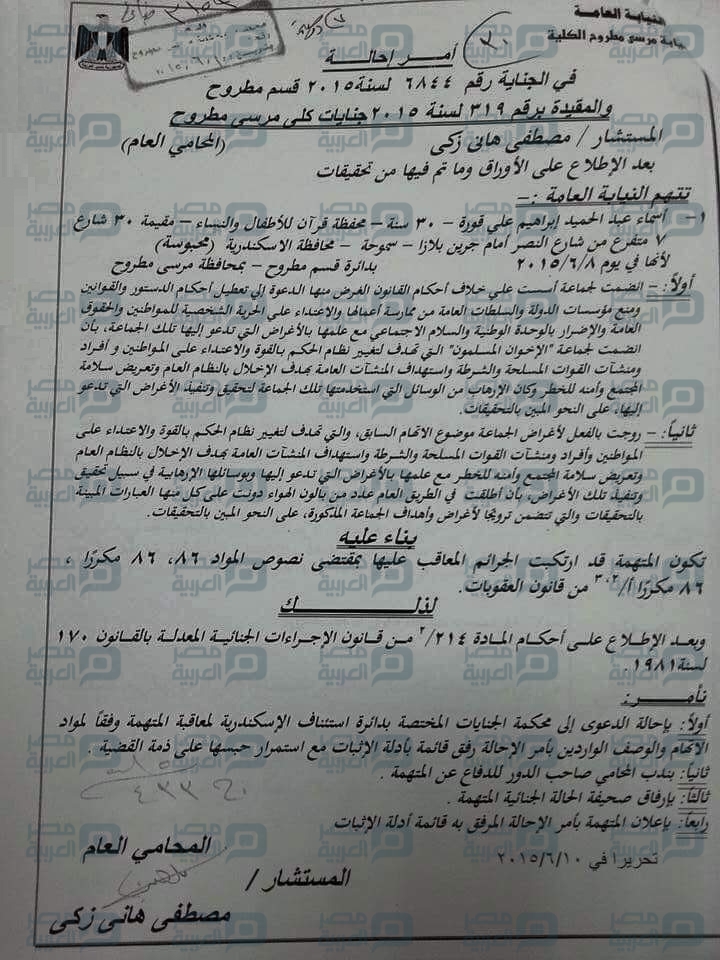 النيابة العامة
نيابة مرسى مطروح الكلية
أمـر إحالـة
في الجناية رقم ٦٨٤٤ لسنة ٢٠١٥ قسم مطروح
والمقيدة برقم ٣١٩ لسنة ٢٠١٥ جنايات كلى مرسى مطروح
المستشار / مصطفى هانى زكى (المحامي العام)
بعد الإطلاع على الأوراق وما تم فيها من تحقيقات
تتهم النيابة العامة :-
١- أسماء عبد الحميد إبراهيم علي قورة - ٣٠ سنة - محفظة قرآن للأطفال والنساء - مقيمة ٣٠ شارع
٧ متفرع من شارع النصر أمام جرين بلازا - سموحة - محافظة الاسكندرية (محبوسة)
لأنها في يوم ٢٠١٥/٦/٨ بدائرة قسم مطروح - بمحافظة مرسى مطروح
أولاً: - انضمت لجماعة أسست على خلاف أحكام القانون الغرض منها الدعوة إلى تعطيل أحكام الدستور والقوانين
ومنع مؤسسات الدولة والسلطات العامة من ممارسة أعمالها والاعتداء على الحرية الشخصية للمواطنين والحقوق
العامة والإضرار بالوحدة الوطنية والسلام الاجتماعي مع علمها بالأغراض التي تدعو إليها تلك الجماعة، بأن
انضمت لجماعة "الإخوان المسلمون" التي تهدف لتغيير نظام الحكم بالقوة والاعتداء على المواطنين و أفراد
ومنشآت القوات المسلحة والشرطة واستهداف المنشآت العامة بهدف الإخلال بالنظام العام وتعريض سلامة
المجتمع وأمنه للخطر وكان الإرهاب من الوسائل التي استخدمتها تلك الجماعة لتحقيق وتنفيذ الأغراض التي تدعو
إليها، على النحو المبين بالتحقيقات.
ثانياً: - روجت بالفعل لأغراض الجماعة موضوع الاتهام السابق، والتي تهدف لتغيير نظام الحكم بالقوة والاعتداء على
المواطنين وأفراد ومنشآت القوات المسلحة والشرطة واستهداف المنشآت العامة بهدف الإخلال بالنظام العام
وتعريض سلامة المجتمع وأمنه للخطر مع علمها بالأغراض التي تدعو إليها وبوسائلها الإرهابية في سبيل تحقيق
وتنفيذ تلك الأغراض، بأن أطلقت في الطريق العام عدد من بالون الهواء دونت على كل منها العبارات المبينة
بالتحقيقات والتي تتضمن ترويجًا لأغراض وأهداف الجماعة المذكورة، على النحو المبين بالتحقيقات.
بناء عليه
تكون المتهمة قد ارتكبت الجرائم المعاقب عليها بمقتضى نصوص المواد ٨٦، ٨٦ مكررًا ،
٨٦ مكررًا أ/٢، ٣ من قانون العقوبات.
لذلـــــــك
وبعد الإطلاع على أحكام المادة ٢١٤/٢ من قانون الإجراءات الجنائية المعدلة بالقانون ١٧٠
لسنة ١٩٨١.
نأمـر:
أولاً: بإحالة الدعوى إلى محكمة الجنايات المختصة بدائرة استئناف الإسكندرية لمعاقبة المتهمة وفقاً لمواد
الاتهام والوصف الواردين بأمر الإحالة رفق قائمة بأدلة الإثبات مع استمرار حبسها على ذمة القضية .
ثانياً: بندب المحامي صاحب الدور للدفاع عن المتهمة .
ثالثاً: بإرفاق صحيفة الحالة الجنائية المتهمة .
رابعاً: بإعلان المتهمة بأمر الإحالة المرفق به قائمة أدلة الإثبات
تحريرا في ٢٠١٥/٦/١٠
المحامي العام
المستشار /
مصطفى هانى زكى
٤٣٣
مصر العربية